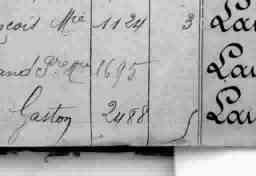 çois Mie 1124 3 Lau
and P're Mie 1695 Lau
Gaston 2488 Lau